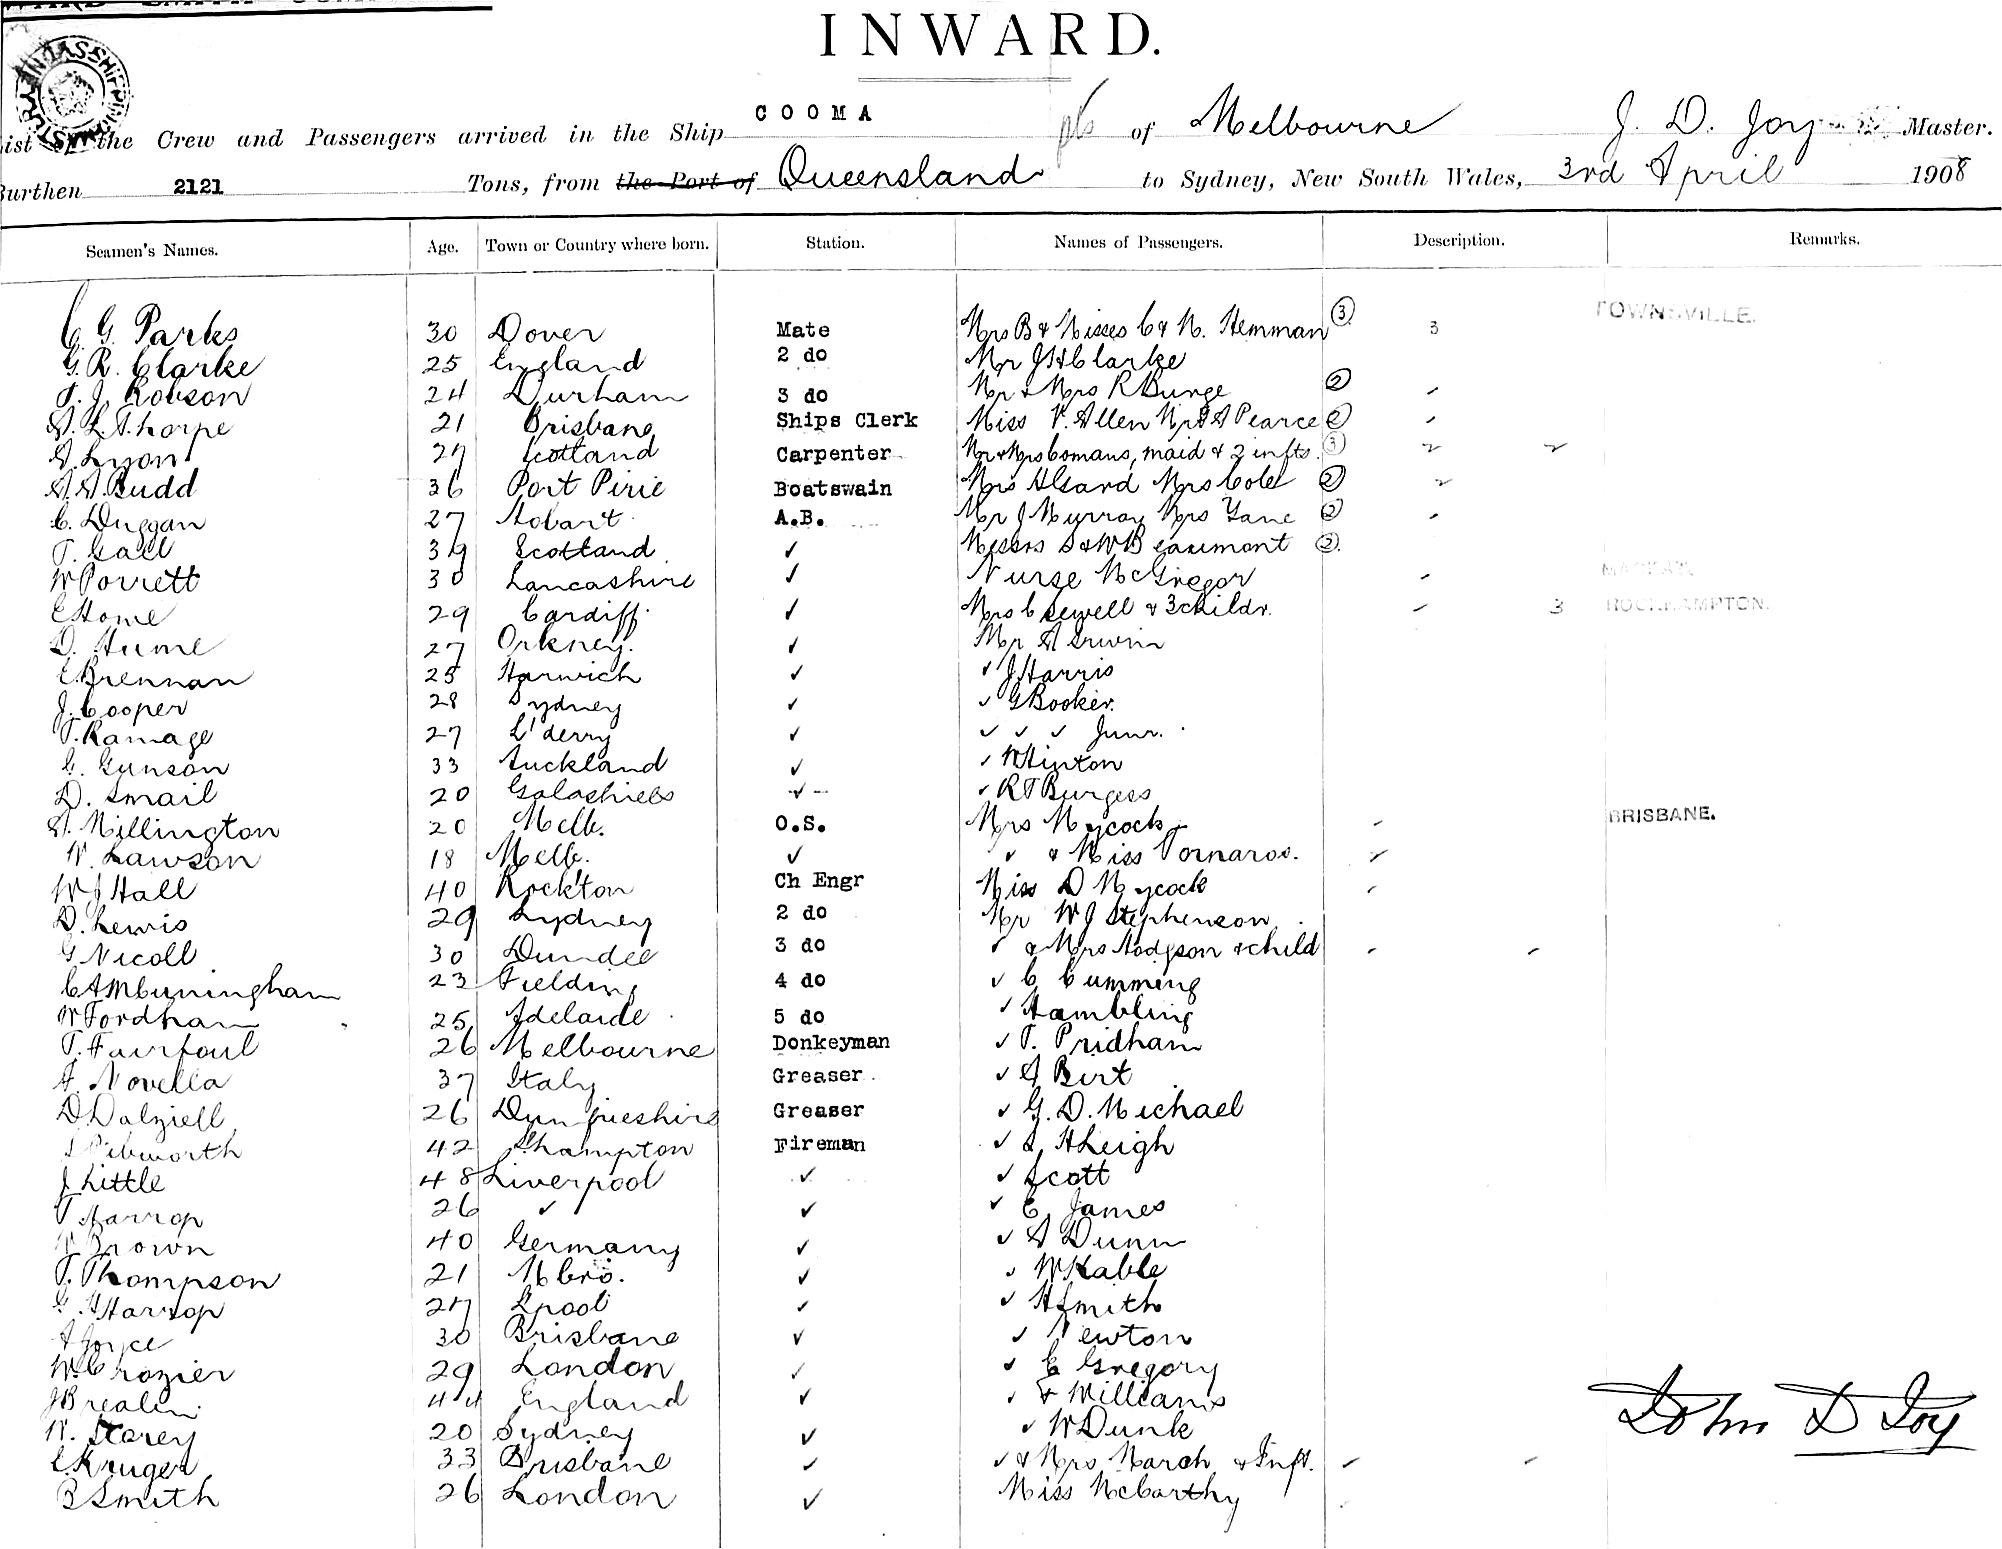 INWARD.
List of the Crew and Passengers arrived in the Ship COOMA of Melbourne J. D. Joy Master.
Burthen 2121 Tons, from the Port of Queensland to Sydney, New South Wales, 3rd April 1908
Seamen's Names. Age. Town or Country where born. Station. Names of Passengers. Description. Remarks.
C. G. Parks 30 Dover Mate Mrs B & Misses C & N. Hemman 3 3 TOWNSVILLE.
G. R. Clarke 25 England 2 do Mr J H Clarke
T. J. Robson 24 Durham 3 do Mr & Mrs R Bunge 2
A. L. Thorpe 21 Brisbane Ships Clerk Miss V. Allen Mr A Pearce 2
A. Lyon 27 Scotland Carpenter Mr & Mrs Comans, maid & 2 infts. 3
A. A. Budd 36 Port Pirie Boatswain Mrs Mrs Cole 2
C. Duggan 27 Hobart A.B. Mr J Murray Mrs Lane 2
T. Gall 39 Scotland ✓ Messrs S & W Beaumont 2
W Porrett 30 Lancashire ✓ Nurse McGregor MACKAY.
E Home 29 Cardiff. ✓ Mrs C Sewell & 3 childr. 3 ROCKHAMPTON.
D. Hume 27 Orkney. ✓ Mr A Irwin
E Brennan 25 Harwich ✓ ✓ J Harris
J. Cooper 28 Sydney ✓ ✓ G Booker.
T. Ramage 27 L'derry ✓ ✓ ✓ ✓ Junr.
G. Gunson 33 Auckland ✓ ✓ W Hinton
D. Smail 20 Galashiels ✓ ✓ R T Burgess
A. Millington 20 Melb. O.S. Mrs Mycock BRISBANE.
W. Lawson 18 Melb. ✓ ✓ & Miss Tornaros.
W J Hall 40 Rockton Ch Engr Miss D Mycock
D. Lewis 29 Sydney 2 do Mr W J Stephenson
G Nicoll 30 Dundee 3 do ✓ & Mrs Hodgson & child
C A M Cuningham 23 Fielding 4 do ✓ C Cumming
W Fordham 25 Adelaide 5 do ✓ Hambling
T. Fairfoul 26 Melbourne Donkeyman ✓ T. Pridham
A. Novella 37 Italy Greaser ✓ A Birt
D. Dalziell 26 Dumfrieshire Greaser ✓ G. D. Michael
Pibworth 42 S'hampton Fireman ✓ H Leigh
J Little 48 Liverpool ✓ ✓ Scott
T Harrop 26 ✓ ✓ ✓ E James
W Brown 40 Germany ✓ ✓ A Dunn
T. Thompson 21 Mbro. ✓ ✓ W Kable
G. H Harrop 27 Lpool ✓ ✓ H Smith
A Joyce 30 Brisbane ✓ ✓ Newton
W. Crozier 29 London ✓ ✓ E Gregory
44 England ✓ ✓ & Williams
W. Storey 20 Sydney ✓ ✓ W Dunk
E. Kruger 33 Brisbane ✓ ✓ & Mrs March & Inft.
B Smith 26 London ✓ Miss McCarthy
John D Joy